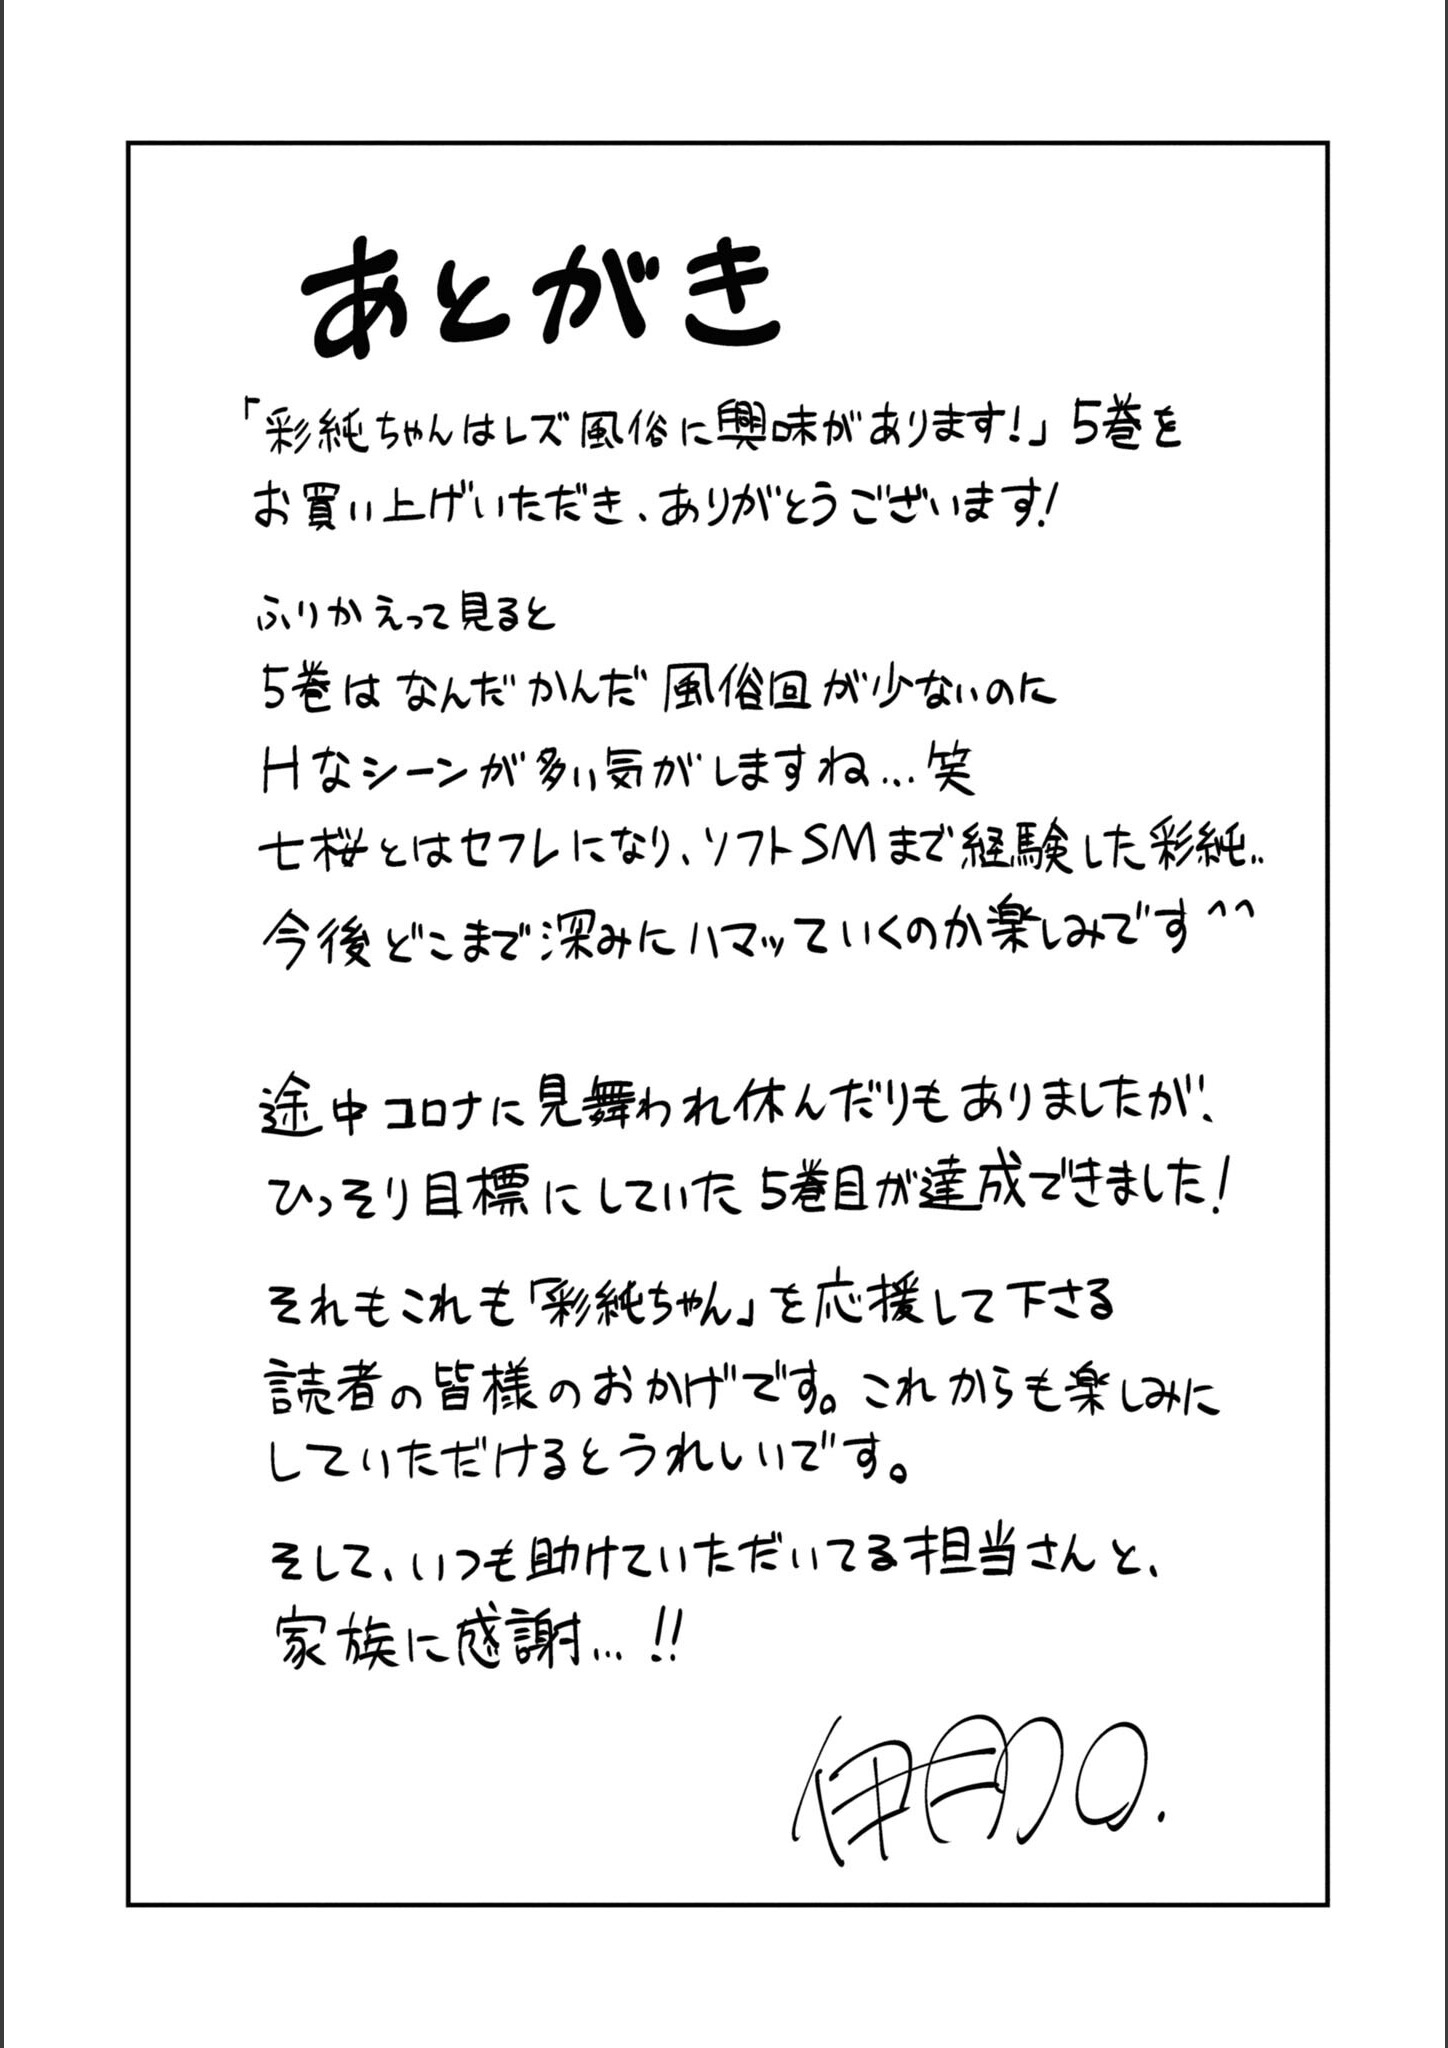 あとがき
「彩純ちゃんはレズ風俗に興味があります!」5巻を
お買い上げいただき、ありがとうございます!
ふりかえって見ると
5巻はなんだかんだ風俗回が少ないのに
Hなシーンが多い気がしますね...笑
七桜とはセフレになり、ソフトSMまで経験した彩純..
今後どこまで深みにハマッていくのか楽しみです^^
途中コロナに見舞われ休んだりもありましたが、
ひっそり目標にしていた5巻目が達成できました!
それもこれも「彩純ちゃん」を応援して下さる
読者の皆様のおかげです。これからも楽しみに
していただけるとうれしいです。
そして、いつも助けていただいてる担当さんと、
家族に感謝...!!